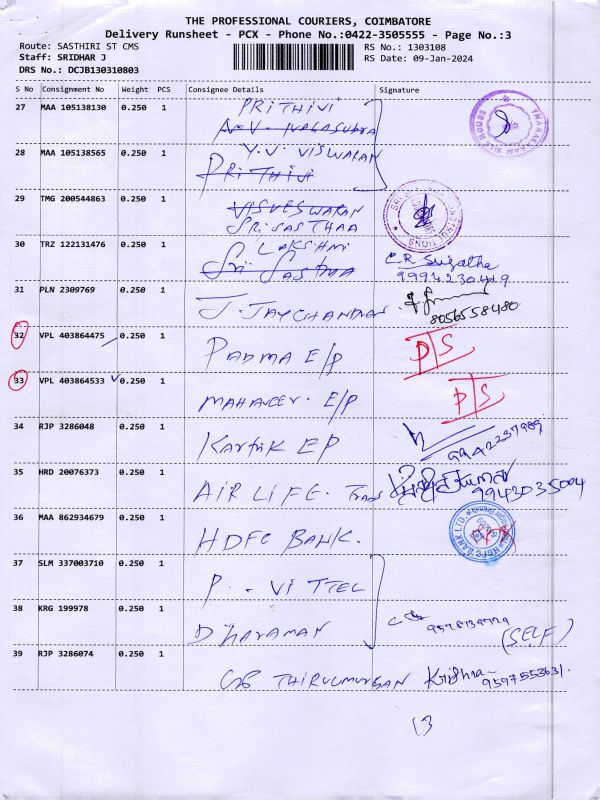 THE PROFESSIONAL COURIERS, COIMBATORE
Delivery Runsheet - PCX - Phone No.:0422-3505555 - Page No.:3
Route: SASTHIRI ST CMS
RS No.: 1303108
Staff: SRIDHAR J
RS Date: 09-Jan-2024
DRS No.: DCJB130310803
S No Consignment No Weight PCS Consignee Details Signature
27 MAA 105138130 0.250 1 PRITHIVI
28 MAA 105138565 0.250 1 Y.V. VISWARAN
PRITHIVI
29 TMG 200544863 0.250 1 VISVESWARAN
SRI SASTHAA
30 TRZ 122131476 0.250 1 LAKSHMI
Sri Sastha C.R Sujatha
9994230419
31 PLN 2309769 0.250 1 J. JAYCHANDRAN.
8056558480
32 VPL 403864475 0.250 1 PADMA E/P D/S
33 VPL 403864533 0.250 1 MAHAVEER. E/P D/S
34 RJP 3286048 0.250 1 Kartik EP 9942237989
35 HRD 20076373 0.250 1 AIR LIFE. Trans
9943035004
36 MAA 862934679 0.250 1 HDFC BANK. HDFC BANK LTD.
37 SLM 337003710 0.250 1 P. VITTEL
38 KRG 199978 0.250 1 DHARAMAN
(SELF)
39 RJP 3286074 0.250 1 THIRUMURGAN Krishna
9597553631.
13